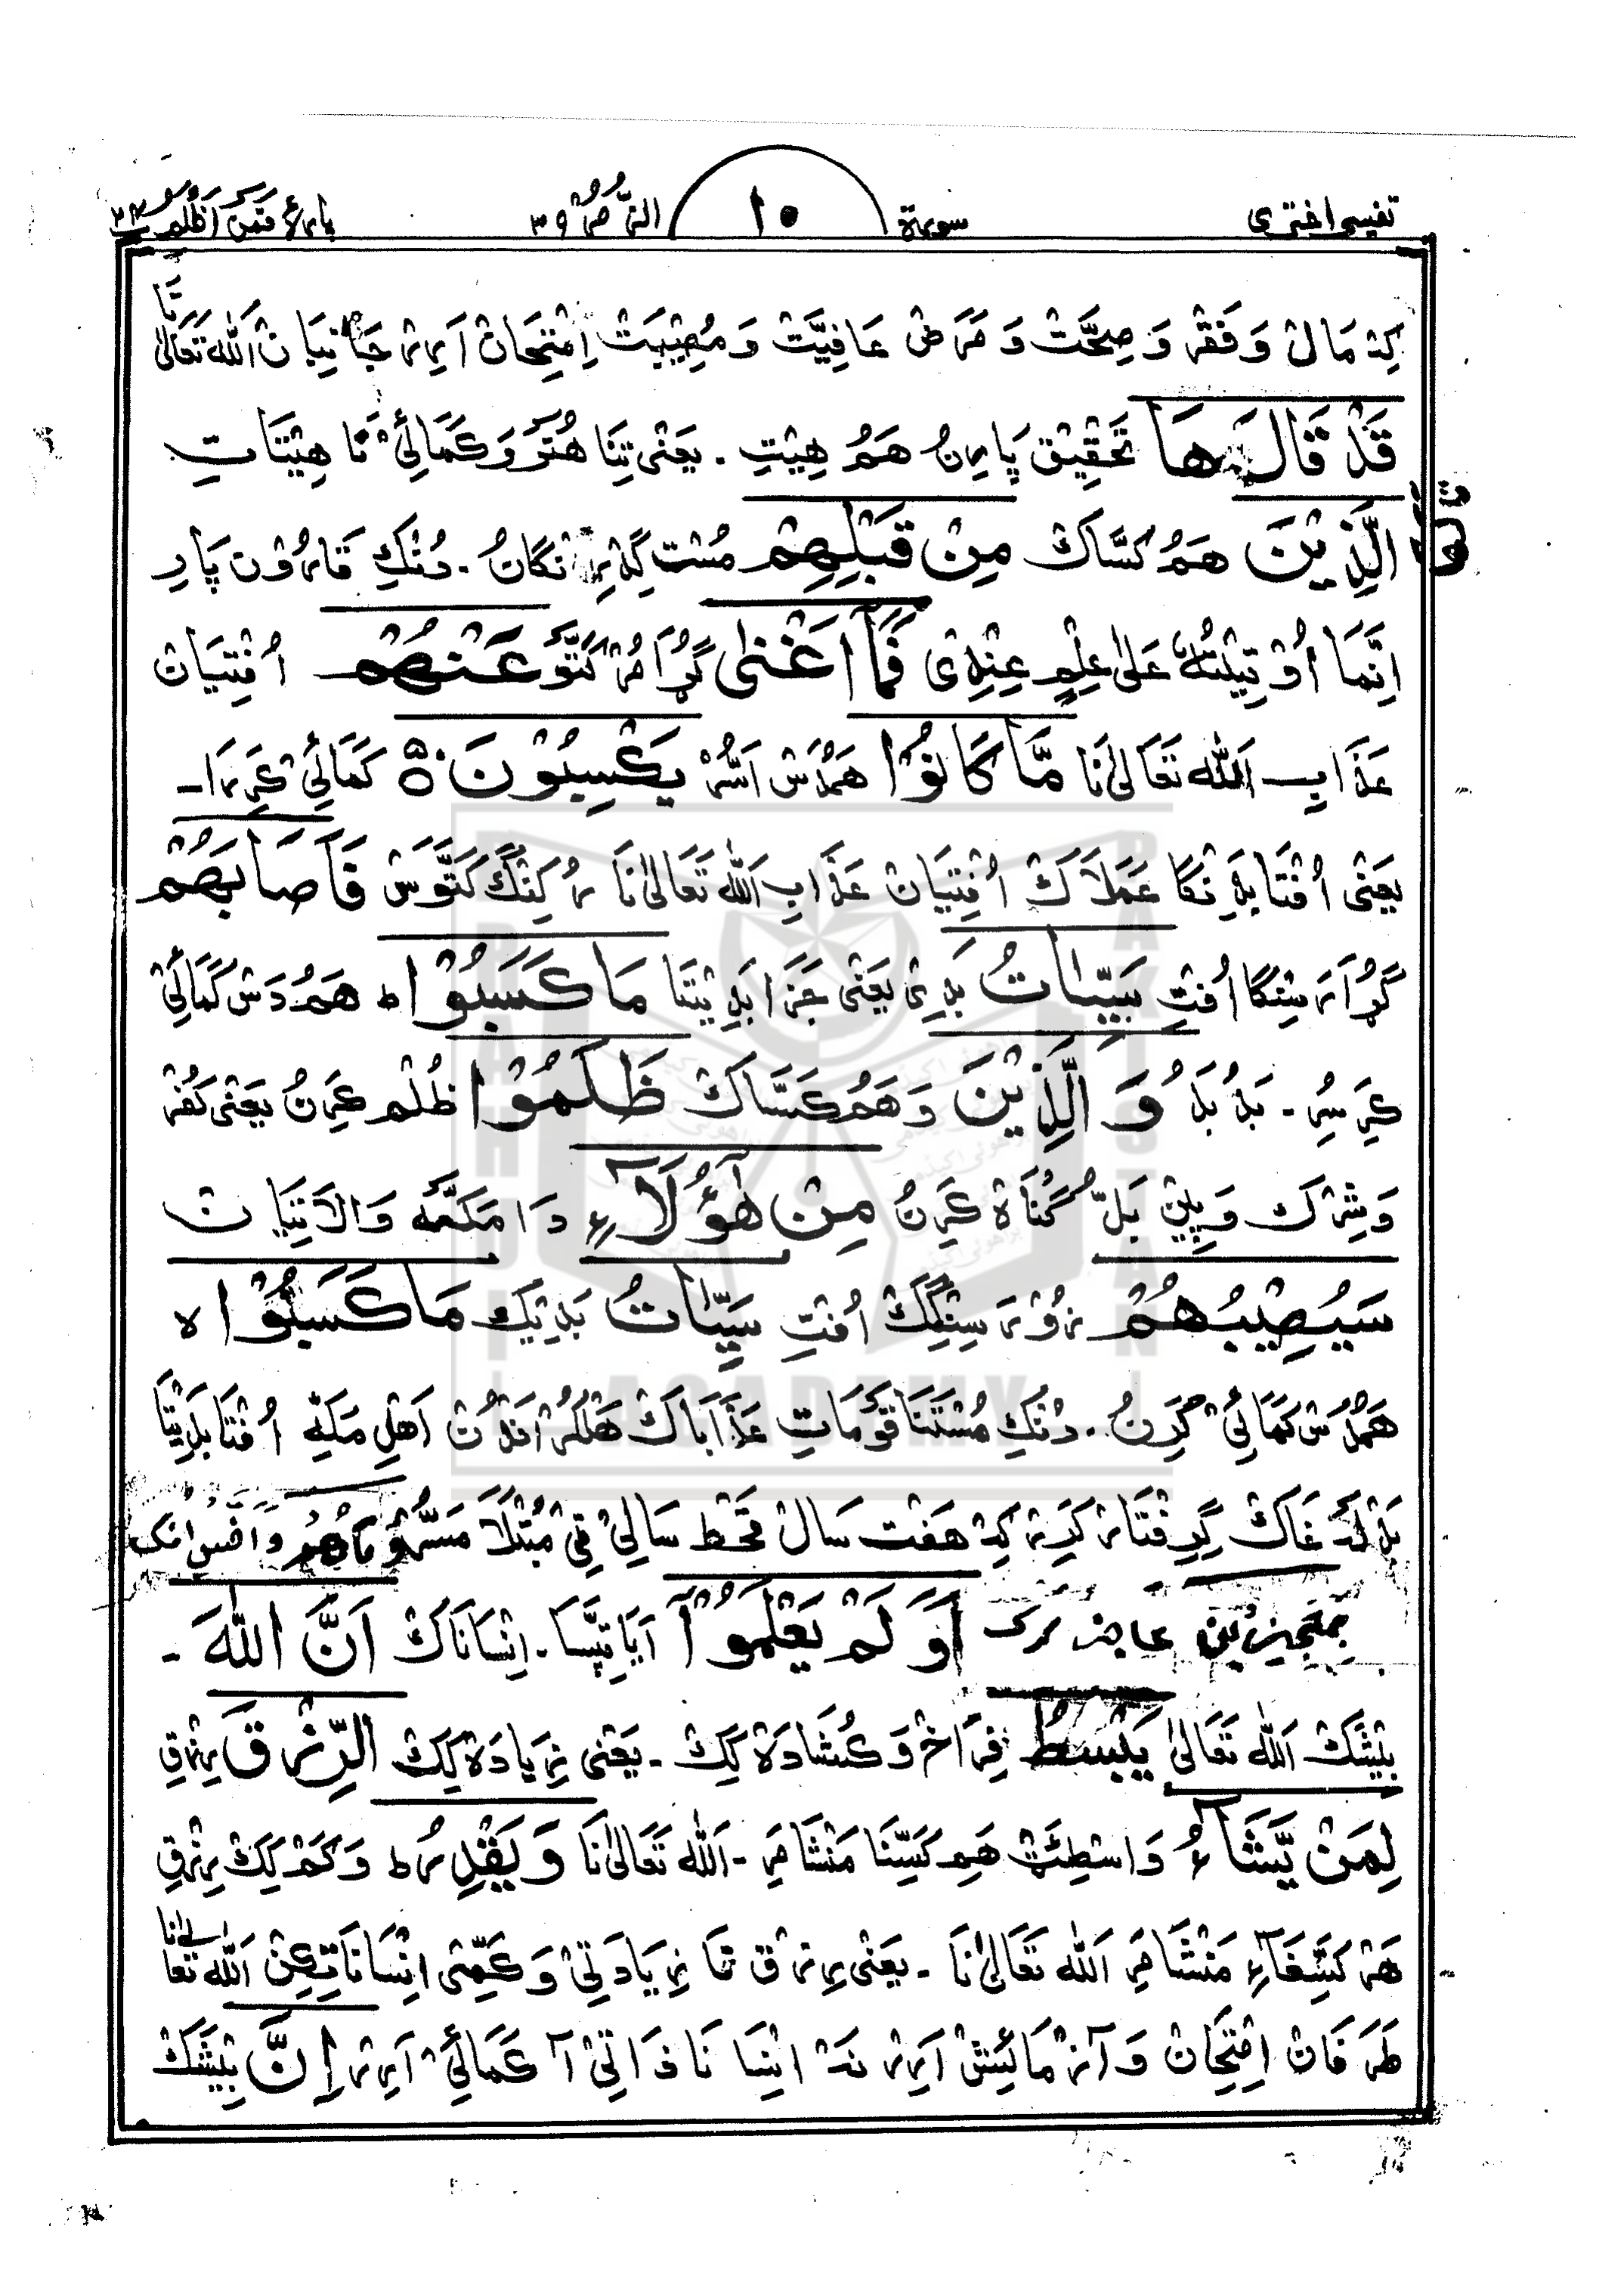 تفسیر اختری سورة ١٠ الزُّمَرُ ٣٩ پارہ فَمَنْ اَظْلَمُ ٢٤
کِہْ مَالْ وَ فَقْرْ وَ صِحَّتْ وَ مَرَضْ عَافِیَّتْ وَ مُصِیْبَتْ اِمْتِحَانْ اَرِیرْ جَانِبَانْ اَللّٰه تَعَالیٰ نَا
قَدْ قَالَهَا تَحْقِیْق پَارِنُ هَمُ هِیْتِ ۔ یَعْنیٰ تِنَا هُنَرْ وَ کَمَائِیْ نَا هِیْتَاتِ
الَّذِیْنَ هَمُ کَسَّاکْ مِنْ قَبْلِهِمْ مُسْت گِدْرِنْگَانُ ۔ دُنْکِ قَارُوْن پَارِ
اِنَّمَا اُوْتِیْتُهٗ عَلیٰ عِلْمٍ عِنْدِیْ فَمَآ اَغْنٰی گُڑَا مُرْ کَتَّوْ عَنْهُمْ اُفْتِیَانْ
عَذَابِ اَللّٰه تَعَالیٰ نَا مَّا کَانُوْا هَمُدْسْ اَسُّرْ یَکْسِبُوْنَ ٥٠ کَمَائِیْ کَرِرَا۔
یَعْنیٰ اُفْتَا بَدِنْکَا عَمَلَاکْ اُفْتِیَانْ عَذَابِ اَللّٰه تَعَالیٰ نَا مُرْ کِنِنْگْ کَتَّوْسْ فَاَصَابَهُمْ
گُڑَا رَسِنْگَا اُفْتِ سَیِّاٰتُ بَدِیْ یَعْنیٰ جَزَا بَدِیْتَا مَا کَسَبُوْا ط هَمُدَسْ کَمَائِیْ
کِرَسُرِ ۔ بَدُ بَدُ وَ الَّذِیْنَ وَ هَمُ کَسَّاکْ ظَلَمُوْا ظُلْم کَرِنُ یَعْنیٰ کُفْرْ
وَ شِرْکْ وَ پِیْنْ بَلُّ گُنَاهْ کَرِنُ مِنْ هٰٓؤُلَآءِ دَا مَکَّه وَالَاتِیَانْ
سَیُصِیْبُهُمْ زُوْرَسِنْگِکْ اُفْتِ سَیِّاٰتُ بَدِیْکْ مَا کَسَبُوْا لا
هَمُدْسْ کَمَائِیْ کَرِنُ ۔ دُنْکِ مُسْتَنَا قَوْمَاتِ عَذَابَاکْ هَلْکُرْ اَنْدُنْ اَهْلِ مَکَّهِ اُفْتَا بَدِیْتَا
گِرِفْتَارْ کَرِیرْ کِہْ هَفْت سَالْ قَحْط سَالِیْ ٹِیْ مُبْتَلَا مَسُّرْ وَمَا هُمْ وَ اَفَسْ اُفْکْ
بِمُعْجِزِیْنَ عاجِز کرک اَوَلَمْ یَعْلَمُوْٓا اَیَا تِپَّسَا ۔ اِنْسَانَاکْ اَنَّ اللّٰهَ ۔
بِیْشَکْ اَللّٰه تَعَالیٰ یَبْسُطُ فِرَاخْ وَ کُشَادَهْ کِکْ ۔ یَعْنیٰ زِیَادَهْ کِکْ الرِّزْقَ رِزْقِ
لِمَنْ یَّشَآءُ وَاسْطِئَٹْ هَمِ کَسِّنَا مَنْشَا مَرِ ۔ اَللّٰه تَعَالیٰ نَا وَ یَقْدِرُ ط وَ کَمْ کِکْ رِزْقِ
هَرْ کَسِّغَآءِ مَنْشَا مَرِ اَللّٰه تَعَالیٰ نَا ۔ یَعْنیٰ رِزْق نَا زِیَادَتِیْ وَ کَمِّی اِنْسَانَاتِکِنْ اَللّٰه تَعَالیٰ نَا
طَرَفَانْ اِمْتِحَانْ وَ آزْمَائِشْ اَرِیرْ نَہْ اِنْسَانَا ذَاتِیْ آ کَمَائِیْ اَرِیرْ اِنَّ بِیْشَکْ